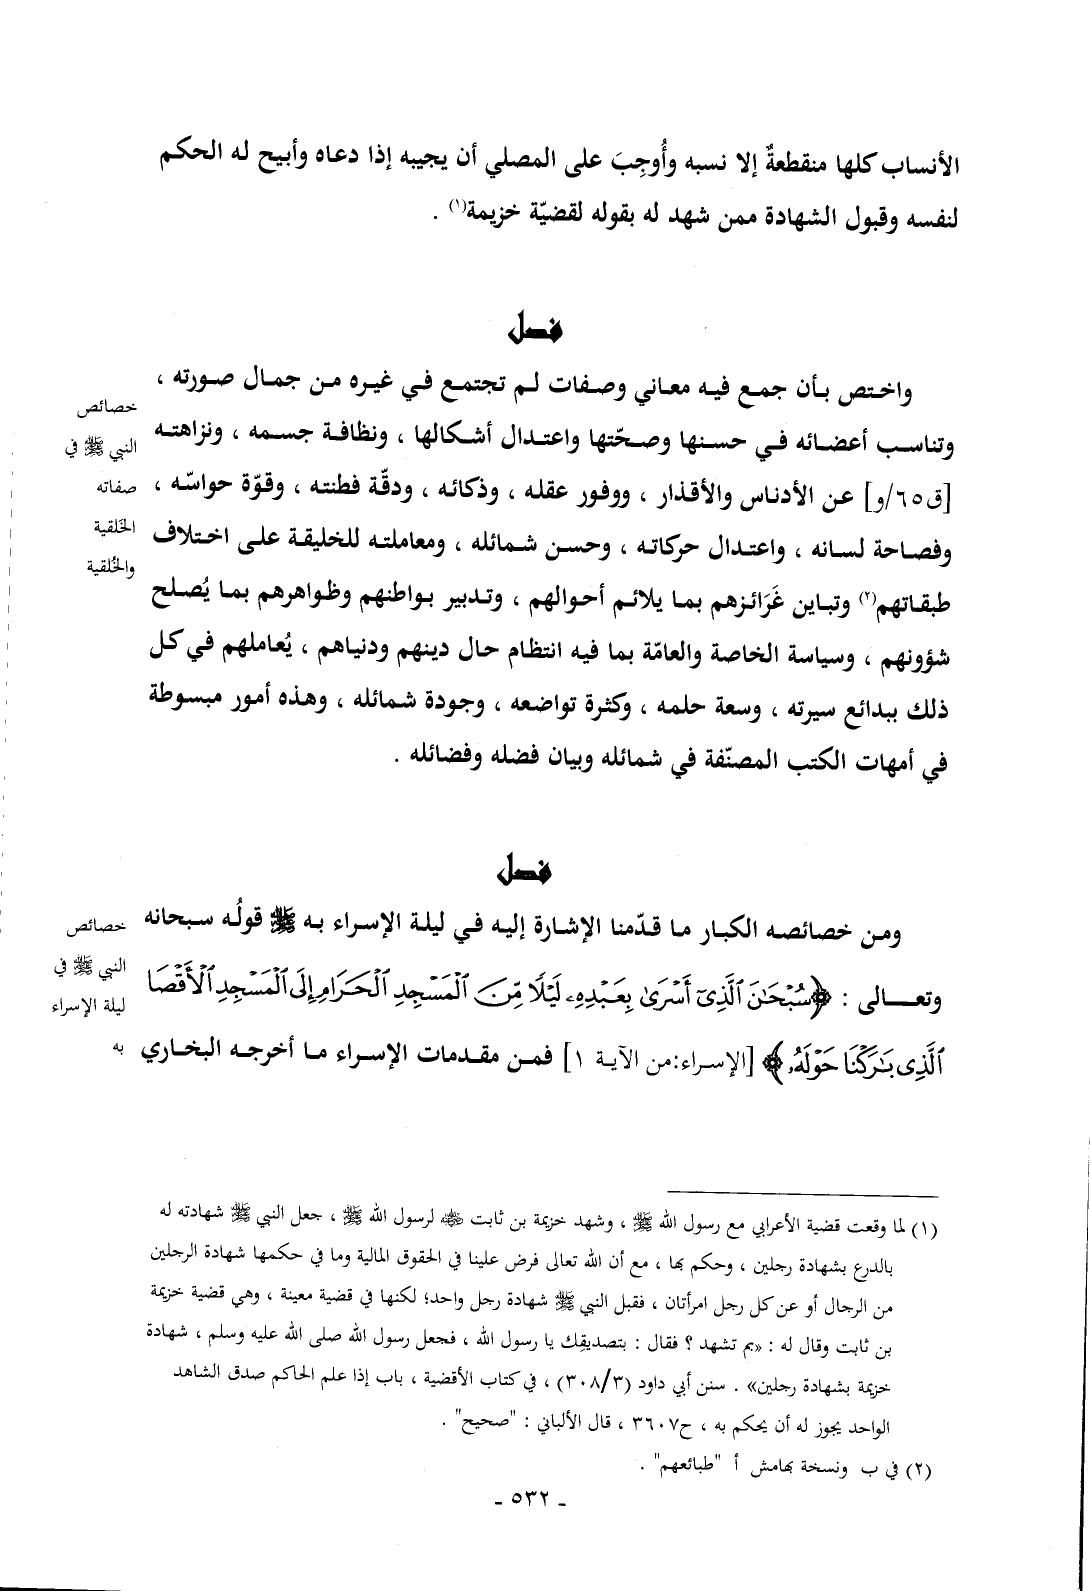 الأنساب كلها منقطعةٌ إلا نسبه وأُوجِبَ على المصلي أن يجيبه إذا دعاه وأبيح له الحكم
لنفسه وقبول الشهادة ممن شهد له بقوله لقضيّة خزيمة(١) .
فصل
واختص بأن جمع فيه معاني وصفات لم تجتمع في غيره من جمال صورته ،
وتناسب أعضائه في حسنها وصحّتها واعتدال أشكالها ، ونظافة جسمه ، ونزاهته
[ق٦٥/و] عن الأدناس والأقذار ، ووفور عقله ، وذكائه ، ودقّة فطنته ، وقوّة حواسّه ،
وفصاحة لسانه ، واعتدال حركاته ، وحسن شمائله ، ومعاملته للخليقة على اختلاف
طبقاتهم(٢) وتباين غَرَائزهم بما يلائم أحوالهم ، وتدبير بواطنهم وظواهرهم بما يُصلح
شؤونهم ، وسياسة الخاصة والعامّة بما فيه انتظام حال دينهم ودنياهم ، يُعاملهم في كل
ذلك ببدائع سيرته ، وسعة حلمه ، وكثرة تواضعه ، وجودة شمائله ، وهذه أمور مبسوطة
في أمهات الكتب المصنّفة في شمائله وبيان فضله وفضائله .
خصائص
النبي ﷺ في
صفاته
الخَلقية
والخُلقية
فصل
ومن خصائصه الكبار ما قدّمنا الإشارة إليه في ليلة الإسراء به ﷺ قولُه سبحانه
وتعـــالى : ﴿سُبْحَٰنَ ٱلَّذِىٓ أَسْرَىٰ بِعَبْدِهِۦ لَيْلًا مِّنَ ٱلْمَسْجِدِ ٱلْحَرَامِ إِلَى ٱلْمَسْجِدِ ٱلْأَقْصَا
ٱلَّذِى بَٰرَكْنَا حَوْلَهُۥ﴾ [الإسراء:من الآية ١] فمن مقدمات الإسراء ما أخرجه البخاري
خصائص
النبي ﷺ في
ليلة الإسراء
به
(١) لما وقعت قضية الأعرابي مع رسول الله ﷺ ، وشهد خزيمة بن ثابت ﵁ لرسول الله ﷺ ، جعل النبي ﷺ شهادته له
بالدرع بشهادة رجلين ، وحكم بها ، مع أن الله تعالى فرض علينا في الحقوق المالية وما في حكمها شهادة الرجلين
من الرجال أو عن كل رجل امرأتان ، فقبل النبي ﷺ شهادة رجل واحد؛ لكنها في قضية معينة ، وهي قضية خزيمة
بن ثابت وقال له : «بم تشهد ؟ فقال : بتصديقك يا رسول الله ، فجعل رسول الله صلى الله عليه وسلم ، شهادة
خزيمة بشهادة رجلين» . سنن أبي داود (٣٠٨/٣) ، في كتاب الأقضية ، باب إذا علم الحاكم صدق الشاهد
الواحد يجوز له أن يحكم به ، ح٣٦٠٧ ، قال الألباني : "صحيح" .
(٢) في ب ونسخة بهامش أ "طبائعهم" .
- ٥٣٢ -